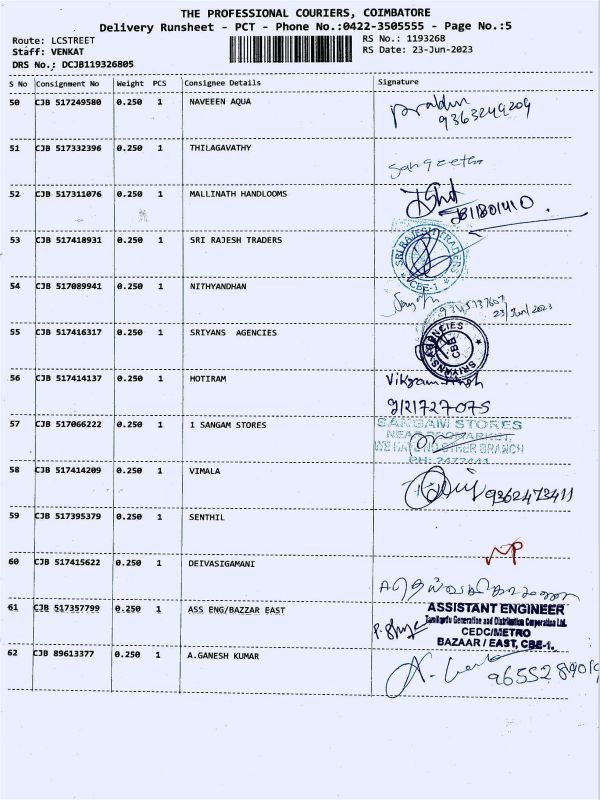 THE PROFESSIONAL COURIERS, COIMBATORE
Delivery Runsheet - PCT - Phone No.:0422-3505555 - Page No.:5
Route: LCSTREET RS No.: 1193268
Staff: VENKAT RS Date: 23-Jun-2023
DRS No.: DCJB119326805
S No Consignment No Weight PCS Consignee Details Signature
50 CJB 517249580 0.250 1 NAVEEEN AQUA
51 CJB 517332396 0.250 1 THILAGAVATHY
52 CJB 517311076 0.250 1 MALLINATH HANDLOOMS
53 CJB 517418931 0.250 1 SRI RAJESH TRADERS
SRI RAJESH TRADERS
CBE-1
54 CJB 517089941 0.250 1 NITHYANDHAN
23/Jun/2023
55 CJB 517416317 0.250 1 SRIYANS AGENCIES
SRIYANS AGENCIES
CBE
56 CJB 517414137 0.250 1 HOTIRAM
Vikram
57 CJB 517066222 0.250 1 1 SANGAM STORES
SANGAM STORES
WE HAVE NO OTHER BRANCH
58 CJB 517414209 0.250 1 VIMALA
9362473411
59 CJB 517395379 0.250 1 SENTHIL
NP
60 CJB 517415622 0.250 1 DEIVASIGAMANI
61 CJB 517357799 0.250 1 ASS ENG/BAZZAR EAST
ASSISTANT ENGINEER
Tamilnadu Generation and Distribution Corporation Ltd.
CEDC/METRO
BAZAAR / EAST, CBE-1.
62 CJB 89613377 0.250 1 A.GANESH KUMAR